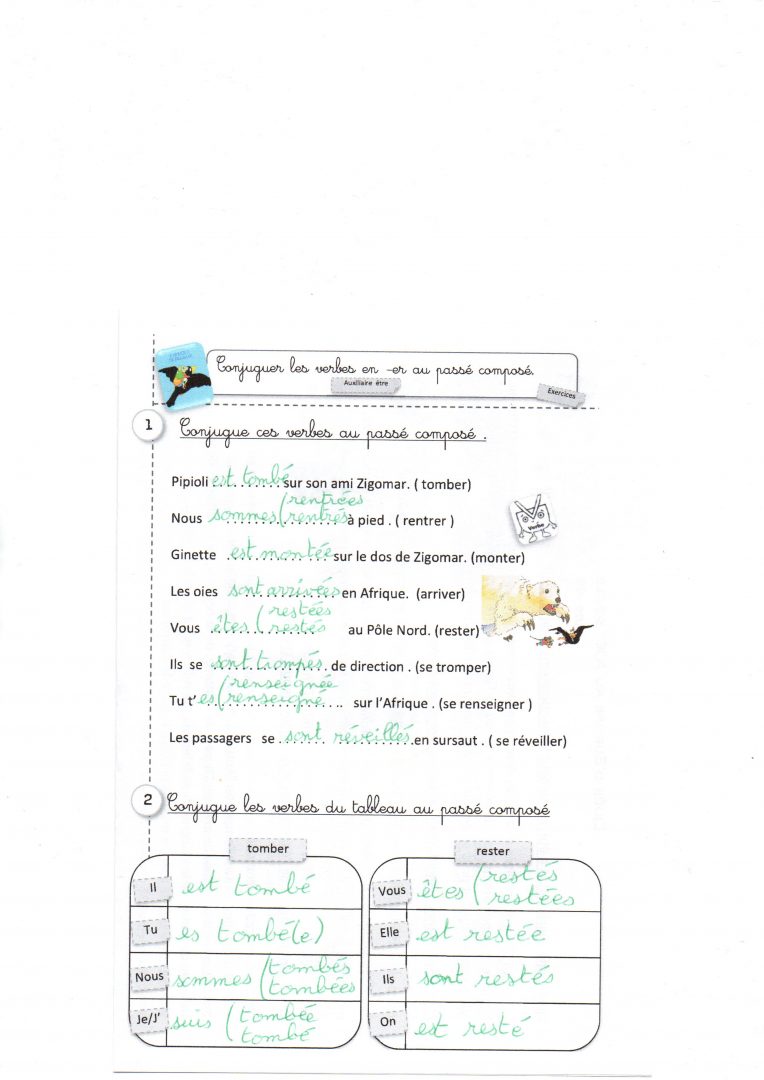 Conjuguer les verbes en -er au passé composé.
Auxiliaire être
Exercices
1
Conjugue ces verbes au passé composé .
Pipioli est tombé sur son ami Zigomar. ( tomber)
rentrées
Nous sommes rentrés à pied . ( rentrer )
Verbe
Ginette est montée sur le dos de Zigomar. (monter)
Les oies sont arrivées en Afrique. (arriver)
restées
Vous êtes restés au Pôle Nord. (rester)
Ils se sont trompés de direction . (se tromper)
renseignée
Tu t’ es renseigné sur l’Afrique . (se renseigner )
Les passagers se sont réveillés en sursaut . ( se réveiller)
2
Conjugue les verbes du tableau au passé composé
tomber
Il est tombé
Tu es tombé(e)
Nous sommes tombés
tombées
Je/J’ suis tombée
tombé
rester
Vous êtes restés
restées
Elle est restée
Ils sont restés
On est resté